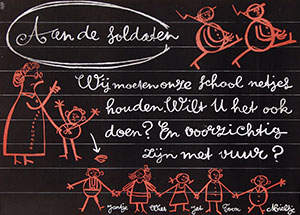 Aan de soldaten
Wij moeten onze school netjes
houden. Wilt U het ook
doen? En voorzichtig
zijn met vuur?
Jantje Wies Jet Toon